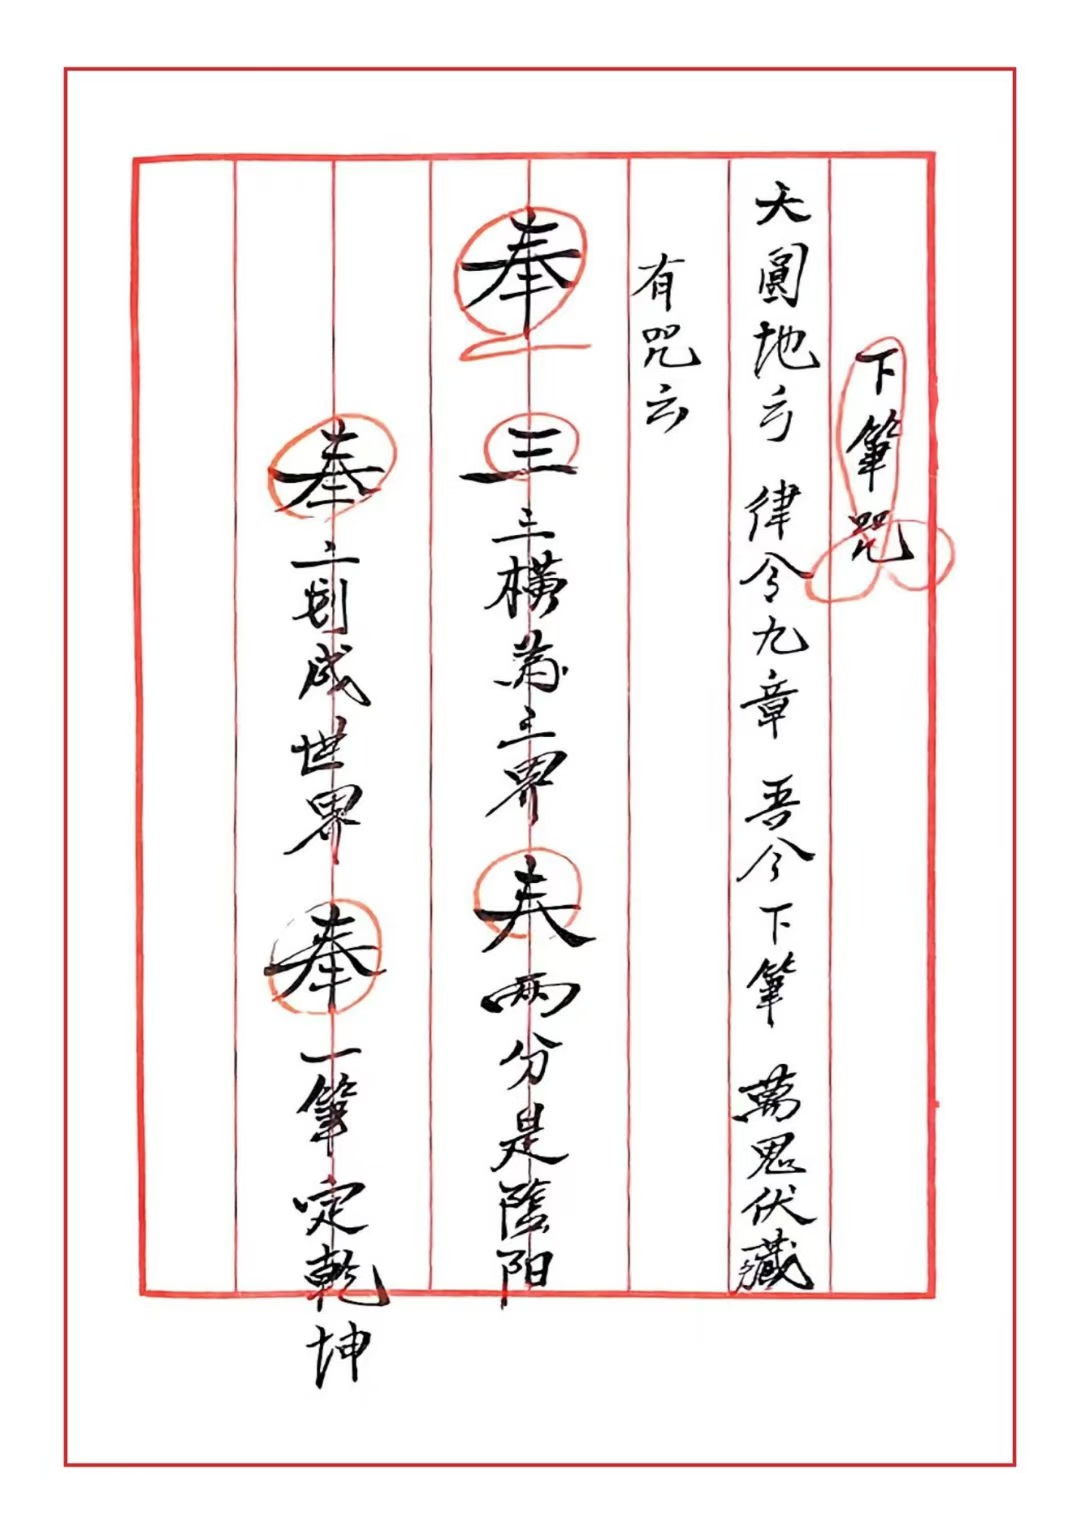 下筆咒
天圓地方 律令九章 吾今下筆 萬鬼伏藏
有咒云
奉 三 三橫為三界 𡗗 兩分是陰陽
二划成世界 奉 一筆定乾坤